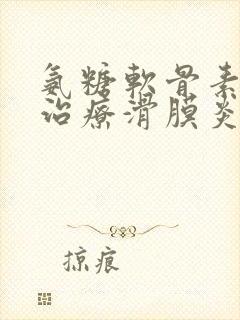 氨糖軟骨素
治療滑膜炎
掠痕